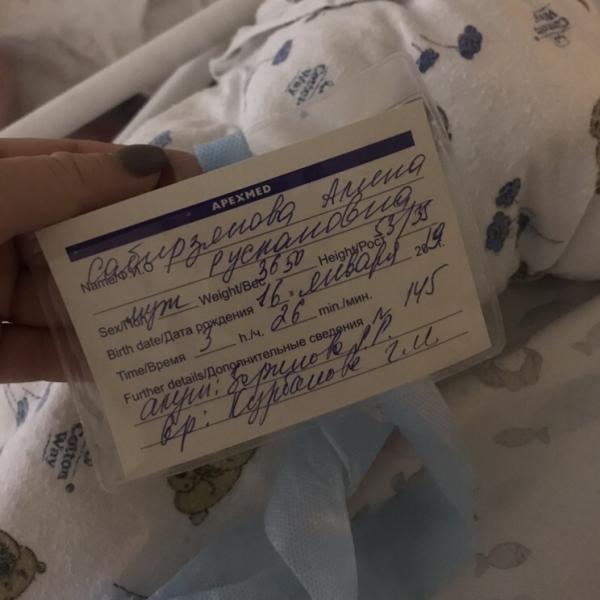 APEXMED
Сабирзянова Алина
Name/Ф.И.О Руслановна
Sex/Пол муж Weight/Вес 3650 Height/Рост 53/35
Birth date/Дата рождения 16 января 2019 г.
Time/Время 3 h./ч. 26 min./мин.
Further details/Дополнительные сведения № 145
акуш: Л.Р.
вр: Курбанова Г.М.
Cotton Way
Cotton Way
Cotton Way